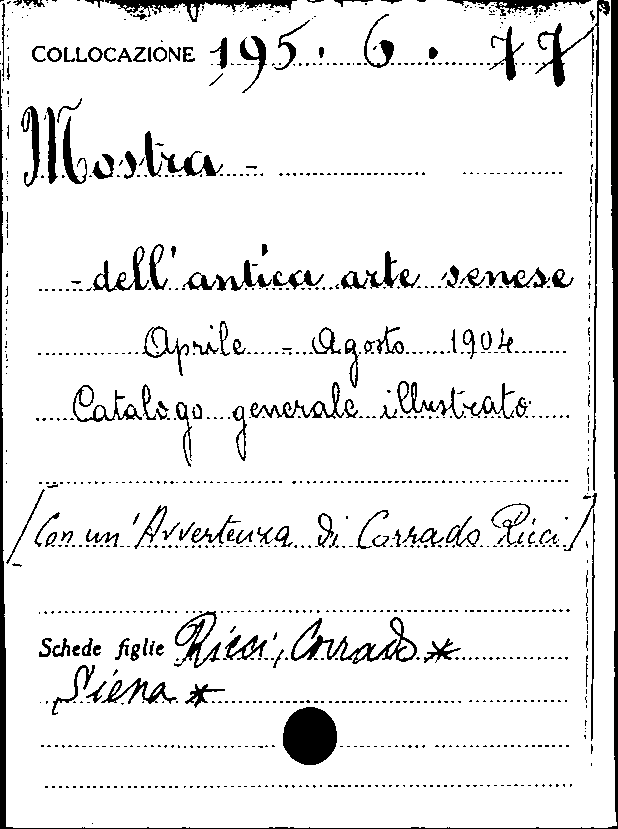 COLLOCAZIONE 195. 6. 77
Mostra -
- dell'antica arte senese
Aprile - Agosto 1904
Catalogo generale illustrato
[Con un'Avvertenza di Corrado Ricci]
Schede figlie Ricci, Corrado *
Siena *